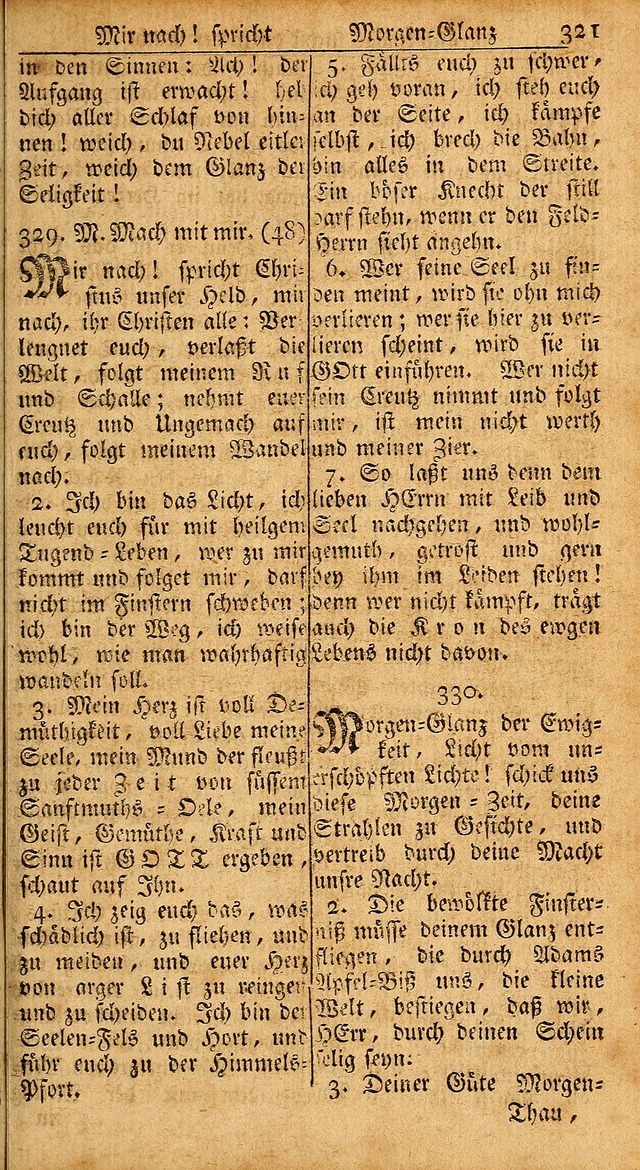 Mir nach! spricht Morgen=Glanz 321
in den Sinnen: Ach! der
Aufgang ist erwacht! heb
dich aller Schlaf von hin=
nen! weich, du Nebel eitler
Zeit, weich dem Glanz der
Seligkeit!
329. M. Mach mit mir. (48)
Mir nach! spricht Chri=
stus unser Held, mir
nach, ihr Christen alle: Ver=
leugnet euch, verlaßt die
Welt, folgt meinem Ruf
und Schalle; nehmt euer
Creutz und Ungemach auf
euch, folgt meinem Wandel
nach.
2. Ich bin das Licht, ich
leucht euch für mit heilgem
Tugend=Leben, wer zu mir
kommt und folget mir, darf
nicht im Finstern schweben;
ich bin der Weg, ich weise
wohl, wie man wahrhaftig
wandeln soll.
3. Mein Herz ist voll De=
müthigkeit, voll Liebe meine
Seele, mein Mund der fleußt
zu jeder Zeit von süssem
Sanftmuths=Oele, mein
Geist, Gemüthe, Kraft und
Sinn ist GOTT ergeben,
schaut auf Ihn.
4. Ich zeig euch das, was
schädlich ist, zu fliehen, und
zu meiden, und euer Herz
von arger List zu reingen
und zu scheiden. Ich bin der
Seelen=Fels und Hort, und
führ euch zu der Himmels=
Pfort.
5. Fällts euch zu schwer,
ich geh voran, ich steh euch
an der Seite, ich kämpfe
selbst, ich brech die Bahn,
bin alles in dem Streite.
Ein böser Knecht der still
darf stehn, wenn er den Feld=
Herrn sieht angehn.
6. Wer seine Seel zu fin=
den meint, wird sie ohn mich
verlieren; wer sie hier zu ver=
lieren scheint, wird sie in
GOtt einführen. Wer nicht
sein Creutz nimmt und folgt
mir, ist mein nicht werth
und meiner Zier.
7. So laßt uns denn dem
lieben HErrn mit Leib und
Seel nachgehen, und wohl=
gemuth, getrost und gern
bey ihm im Leiden stehen!
denn wer nicht kämpft, trägt
auch die Kron des ewgen
Lebens nicht davon.
330.
Morgen=Glanz der Ewig=
keit, Licht vom un=
erschöpften Lichte! schick uns
diese Morgen=Zeit, deine
Strahlen zu Gesichte, und
vertreib durch deine Macht
unsre Nacht.
2. Die bewölkte Finster=
niß müsse deinem Glanz ent=
fliegen, die durch Adams
Apfel=Biß uns, die kleine
Welt, bestiegen, daß wir,
HErr, durch deinen Schein
selig seyn.
3. Deiner Güte Morgen=
Thau,